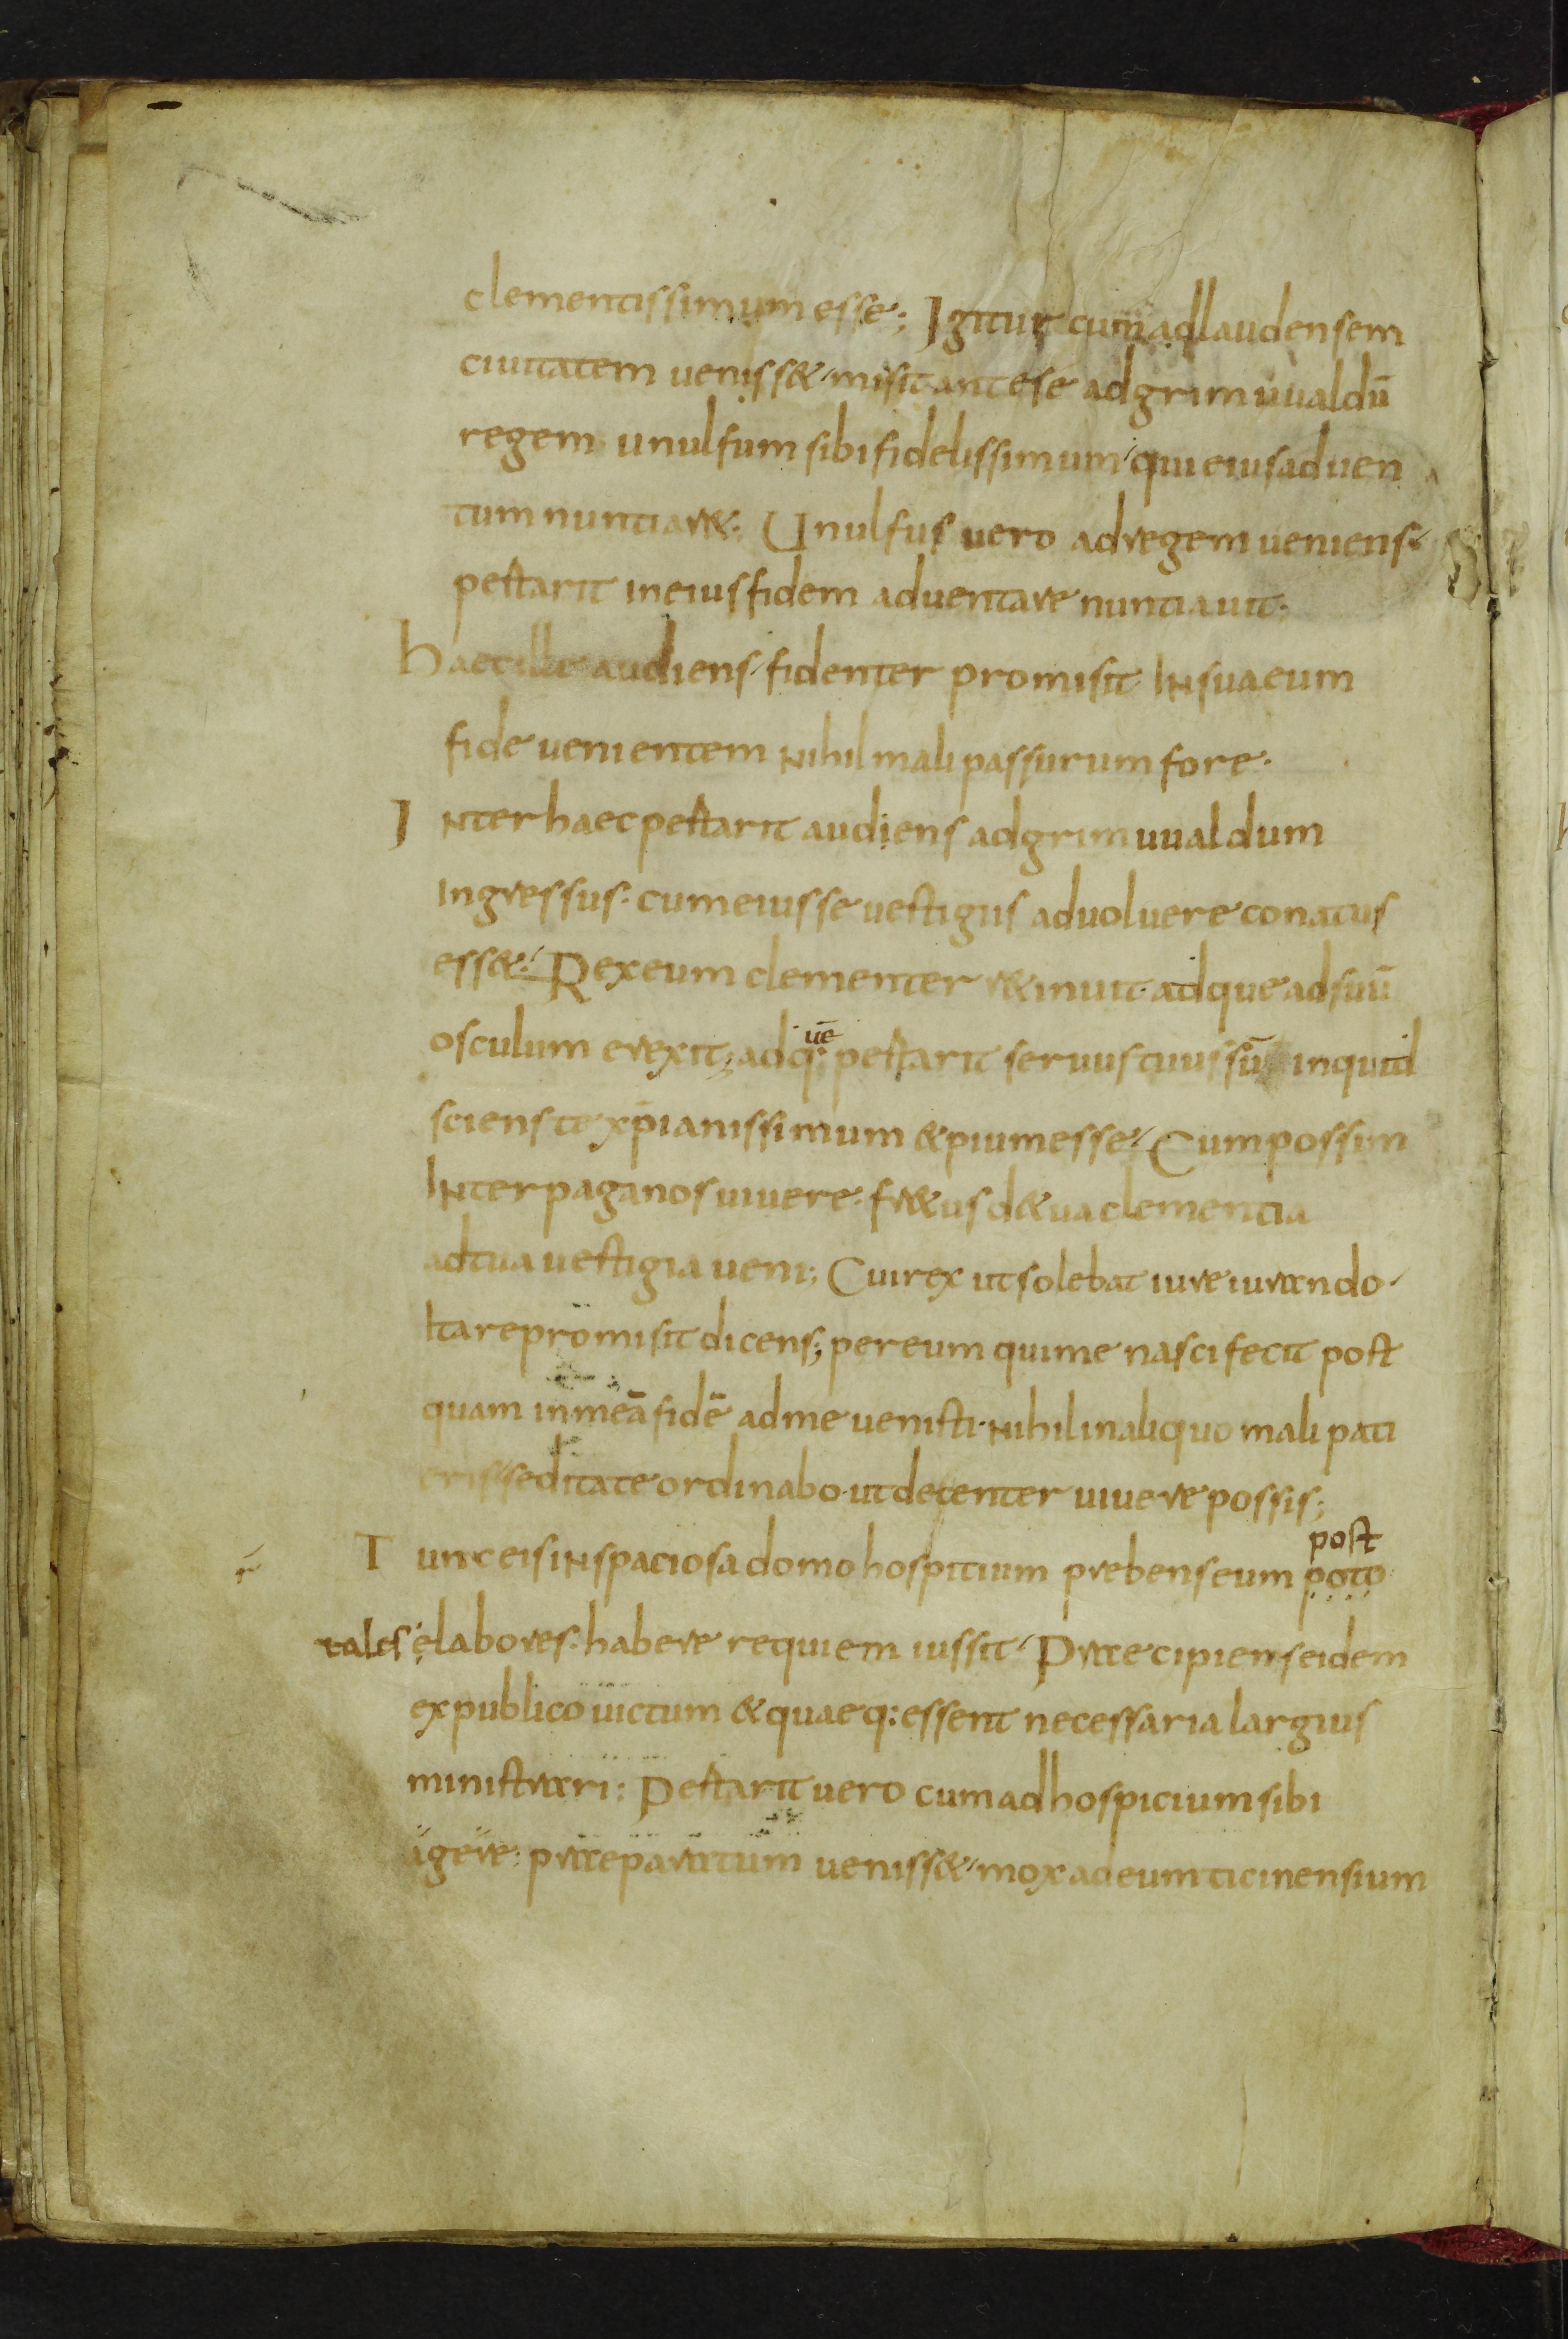 clementissimum esse; Igitur cum adlaudensem
ciuitatem ueniss&, misit ante se ad grimuualdū
regem unulfum sibi fidelissimum, qui eius aduen
tum nuntiar&; Unulfus uero ad regem ueniens,
pectarit in eius fidem aduentare nuntiauit.
Haec ille audiens, fidenter promisit In sua eum
fide uenientem nihil mali passurum fore.
Inter haec pectarit audiens ad grimuualdum
ingressus. cum eius se uestigiis aduoluere conatus
ess&; Rex eum clementer r&inuit. adque ad suū
osculum erexit; adq: pectarit seruus tuus sū inquid
sciens te xp̄ianissimum & pium esse, Cum possim
Inter paganos uiuere. fr&us d& tua clementia
ad tua uestigia ueni; Cui rex ut solebat iureiurando,
Ita repromisit dicens; per eum qui me nasci fecit post
quam in meā fidē ad me uenisti. nihil in aliquo mali pati
eris, sed ita te ordinabo. ut decenter uiuere possis;
post
Tunc eis in spaciosa domo hospitium prebens eum poto
tales elabores: habere requiem iussit, Praecipiens eidem
ex publico uictum & quaeq: essent necessaria largius
ministrari; Pectarit uero cum ad hospicium sibi
agere: praeparatum ueniss&, mox ad eum ticinensium